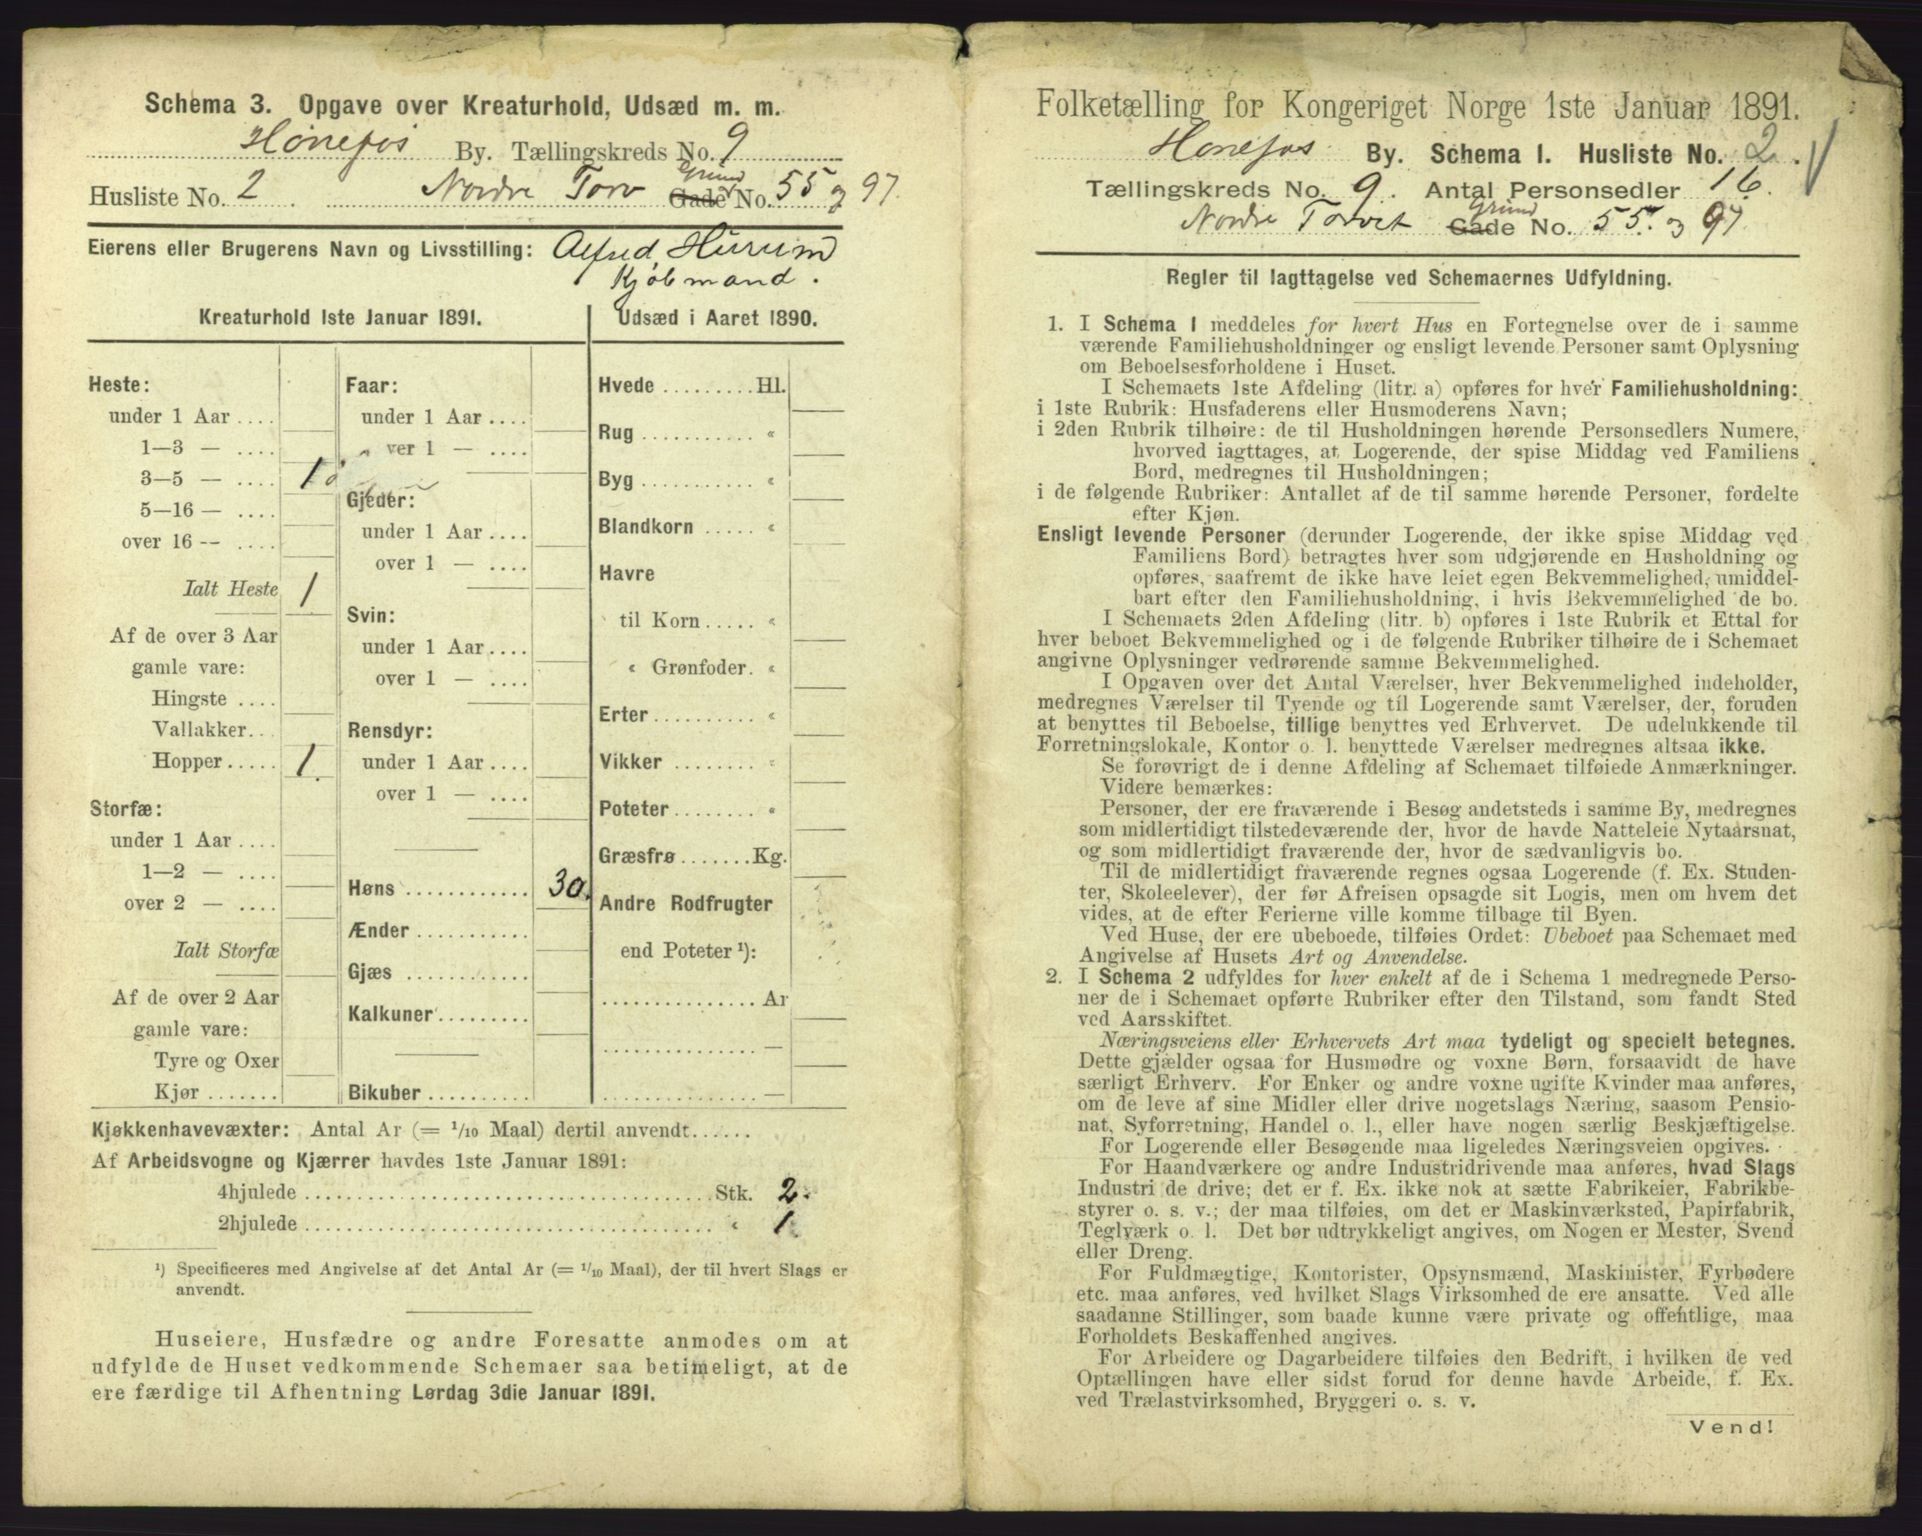 Schema 3. Opgave over Kreaturhold, Udsæd m. m.
Hønefos By. Tællingskreds No. 9
Husliste No. 2 Nordre Torv Gade Grund No. 55 og 97.
Eierens eller Brugerens Navn og Livsstilling: Alfred Hurum
Kjøbmand.
Kreaturhold 1ste Januar 1891.
Heste:
under 1 Aar ....
1—3 — ....
3—5 — .... 1
5—16 — ....
over 16 — ....
Ialt Heste 1
Af de over 3 Aar
gamle vare:
Hingste ....
Vallakker...
Hopper ..... 1.
Storfæ:
under 1 Aar ....
1—2 — ....
over 2 — ....
Ialt Storfæ
Af de over 2 Aar
gamle vare:
Tyre og Oxer
Kjør .......
Faar:
under 1 Aar ....
ver 1 — ....
Gjeder:
under 1 Aar ....
over 1 — ....
Svin:
under 1 Aar ....
over 1 — ....
Rensdyr:
under 1 Aar ....
over 1 — ....
Høns ............ 30.
Ænder ...........
Gjæs ............
Kalkuner.........
Bikuber ..........
Udsæd i Aaret 1890.
Hvede ......... Hl.
Rug ........... «
Byg ........... «
Blandkorn ..... «
Havre
til Korn ..... «
« Grønfoder. «
Erter .......... «
Vikker ........ «
Poteter ........ «
Græsfrø ....... Kg.
Andre Rodfrugter
end Poteter ¹):
............... Ar
............... —
............... —
Kjøkkenhavevæxter: Antal Ar (= 1/10 Maal) dertil anvendt......
Af Arbeidsvogne og Kjærrer havdes 1ste Januar 1891:
4hjulede ........................................ Stk. 2.
2hjulede ........................................ « 1
¹) Specificeres med Angivelse af det Antal Ar (= 1/10 Maal), der til hvert Slags er
anvendt.
Huseiere, Husfædre og andre Foresatte anmodes om at
udfylde de Huset vedkommende Schemaer saa betimeligt, at de
ere færdige til Afhentning Lørdag 3die Januar 1891.
Folketælling for Kongeriget Norge 1ste Januar 1891.
Hønefos By. Schema 1. Husliste No. 2.
Tællingskreds No. 9. Antal Personsedler 16.
Nordre Torvet Gade Grund No. 55. og 97.
Regler til Iagttagelse ved Schemaernes Udfyldning.
1. I Schema 1 meddeles for hvert Hus en Fortegnelse over de i samme
værende Familiehusholdninger og ensligt levende Personer samt Oplysning
om Beboelsesforholdene i Huset.
I Schemaets 1ste Afdeling (litr. a) opføres for hver Familiehusholdning:
i 1ste Rubrik: Husfaderens eller Husmoderens Navn;
i 2den Rubrik tilhøire: de til Husholdningen hørende Personsedlers Numere,
hvorved iagttages, at Logerende, der spise Middag ved Familiens
Bord, medregnes til Husholdningen;
i de følgende Rubriker: Antallet af de til samme hørende Personer, fordelte
efter Kjøn.
Ensligt levende Personer (derunder Logerende, der ikke spise Middag ved
Familiens Bord) betragtes hver som udgjørende en Husholdning og
opføres, saafremt de ikke have leiet egen Bekvemmelighed, umiddel-
bart efter den Familiehusholdning, i hvis Bekvemmelighed de bo.
I Schemaets 2den Afdeling (litr. b) opføres i 1ste Rubrik et Ettal for
hver beboet Bekvemmelighed og i de følgende Rubriker tilhøire de i Schemaet
angivne Oplysninger vedrørende samme Bekvemmelighed.
I Opgaven over det Antal Værelser, hver Bekvemmelighed indeholder,
medregnes Værelser til Tyende og til Logerende samt Værelser, der, foruden
at benyttes til Beboelse, tillige benyttes ved Erhvervet. De udelukkende til
Forretningslokale, Kontor o. l. benyttede Værelser medregnes altsaa ikke.
Se forøvrigt de i denne Afdeling af Schemaet tilføiede Anmærkninger.
Videre bemærkes:
Personer, der ere fraværende i Besøg andetsteds i samme By, medregnes
som midlertidigt tilstedeværende der, hvor de havde Natteleie Nytaarsnat,
og som midlertidigt fraværende der, hvor de sædvanligvis bo.
Til de midlertidigt fraværende regnes ogsaa Logerende (f. Ex. Studen-
ter, Skoleelever), der før Afreisen opsagde sit Logis, men om hvem det
vides, at de efter Ferierne ville komme tilbage til Byen.
Ved Huse, der ere ubeboede, tilføies Ordet: Ubeboet paa Schemaet med
Angivelse af Husets Art og Anvendelse.
2. I Schema 2 udfyldes for hver enkelt af de i Schema 1 medregnede Perso-
ner de i Schemaet opførte Rubriker efter den Tilstand, som fandt Sted
ved Aarsskiftet.
Næringsveiens eller Erhvervets Art maa tydeligt og specielt betegnes.
Dette gjælder ogsaa for Husmødre og voxne Børn, forsaavidt de have
særligt Erhverv. For Enker og andre voxne ugifte Kvinder maa anføres,
om de leve af sine Midler eller drive nogetslags Næring, saasom Pensio-
nat, Syforretning, Handel o. l., eller have nogen særlig Beskjæftigelse.
For Logerende eller Besøgende maa ligeledes Næringsveien opgives.
For Haandværkere og andre Industridrivende maa anføres, hvad Slags
Industri de drive; det er f. Ex. ikke nok at sætte Fabrikeier, Fabrikbe-
styrer o. s. v.; der maa tilføies, om det er Maskinværksted, Papirfabrik,
Teglværk o. l. Det bør udtrykkeligt angives, om Nogen er Mester, Svend
eller Dreng.
For Fuldmægtige, Kontorister, Opsynsmænd, Maskinister, Fyrbødere
etc. maa anføres, ved hvilket Slags Virksomhed de ere ansatte. Ved alle
saadanne Stillinger, som baade kunne være private og offentlige, maa
Forholdets Beskaffenhed angives.
For Arbeidere og Dagarbeidere tilføies den Bedrift, i hvilken de ved
Optællingen have eller sidst forud for denne havde Arbeide, f. Ex.
ved Trælastvirksomhed, Bryggeri o. s. v.
Vend!